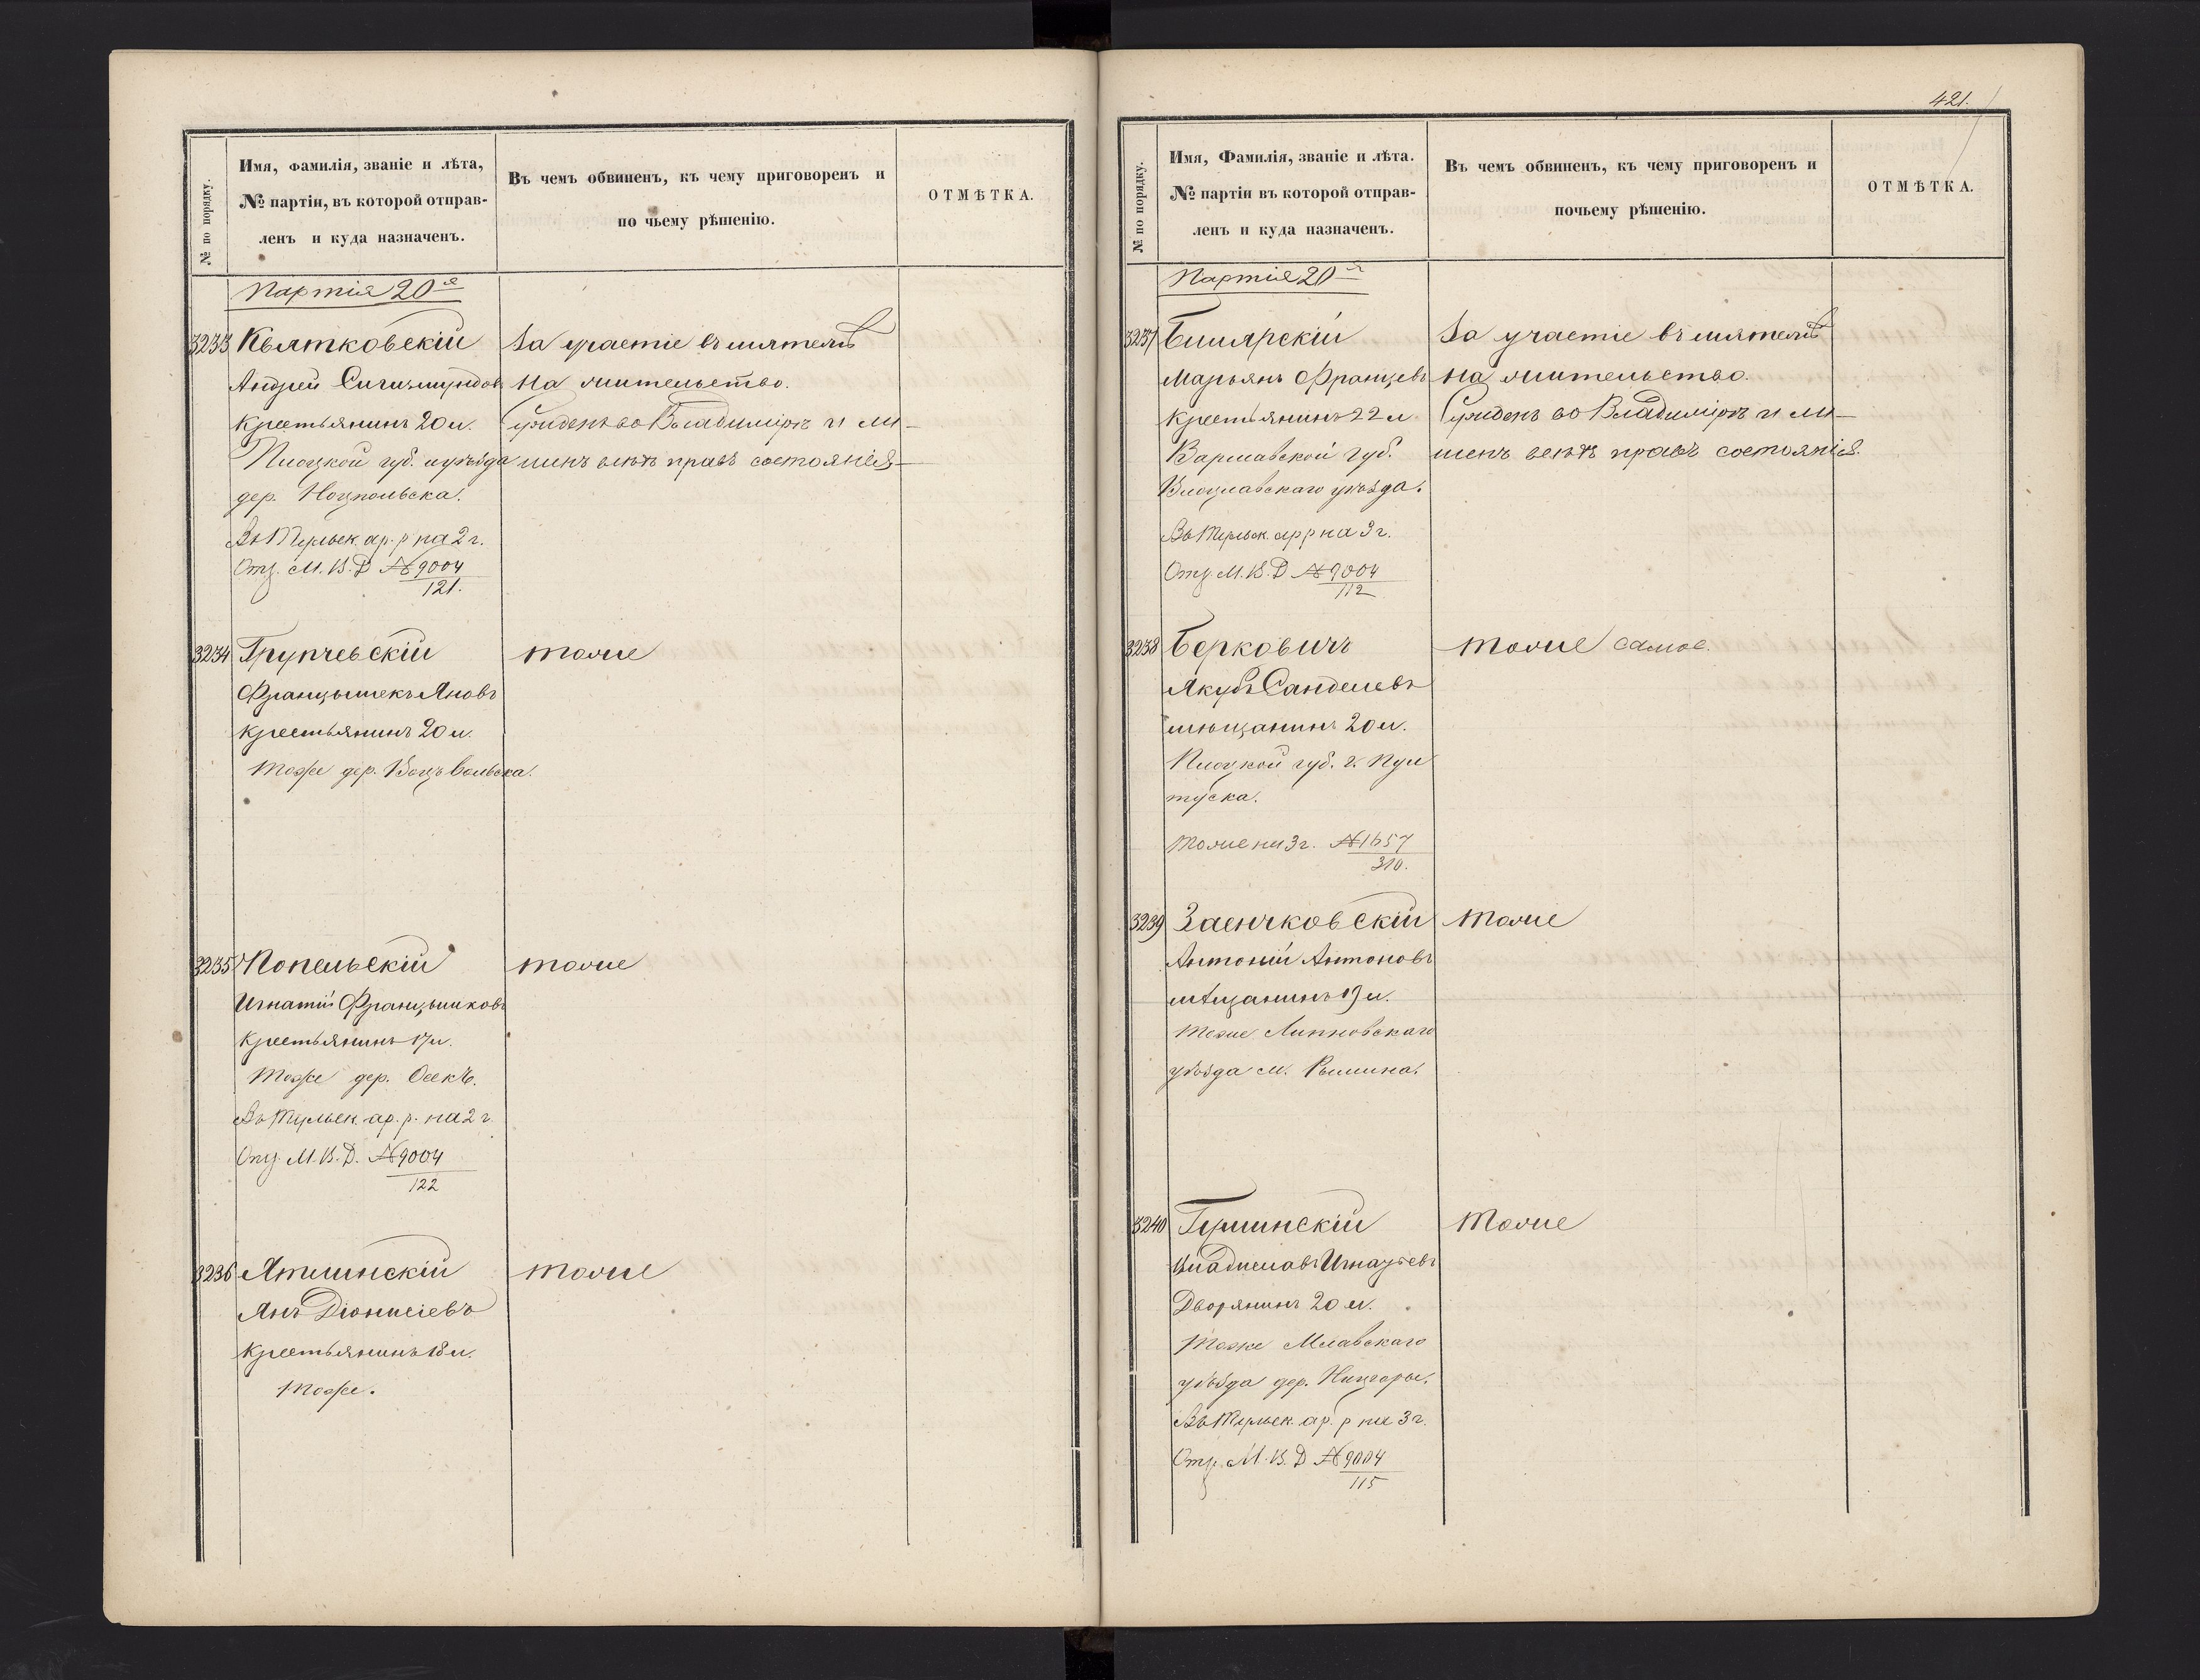 № по порядку.
Имя, фамилія, званіе и лѣта,
№ партіи, въ которой отправ-
ленъ и куда назначенъ.
Въ чемъ обвиненъ, къ чему приговоренъ и
по чьему рѣшенію.
ОТМѢТКА.
Партія 20я
3233 Квятковскій
Андрей Сигизмундовъ
Крестьянинъ 20 л.
Плоцкой губ. и уѣзда
дер.
Въ Тульск. ар. р на 2 г.
М. В. Д № 9004
121.
За участіе въ мятежѣ
на жительство.
Сужденъ во Владимірѣ и ли-
шенъ всѣхъ правъ состоянія
3234 Групчевскій
Францышекъ Яновъ
крестьянинъ 20 л.
Тоже дер.
тоже
3235 Попельскій
Игнатій Францышковъ
Крестьянинъ 17 л.
Тоже дер. Осекъ.
Въ Тульск. ар. р. на 2 г.
М. В. Д. № 9004
122
тоже
3236
Янъ Діонисіевъ
Крестьянинъ 18 л.
Тоже.
тоже
421.
№ по порядку.
Имя, Фамилія, званіе и лѣта.
№ партіи въ которой отправ-
ленъ и куда назначенъ.
Въ чемъ обвиненъ, къ чему приговоренъ и
почьему рѣшенію.
ОТМѢТКА.
Партія 20я
3237
Марьянъ Францевъ
Крестьянинъ 22 л
Варшавской Губ.
Влоцлавскаго уѣзда.
Въ Тульск. ар р на 3 г.
М. В. Д № 9004
112
За участіе въ мятежѣ
на жительство.
Сужденъ во Владимірѣ и ли-
шенъ всѣхъ правъ состоянія.
3238 Берковичъ
Якубъ
мѣщанинъ 20 л.
Плоцкой губ. г. Пул
туска.
Тоже на 3 г. № 1657
310.
тоже самое.
3239 Заенчковскій
Антоній Антоновъ
мѣщанинъ 19 л.
Тоже Липновскаго
уѣзда м. Рыпина.
тоже
3240
Владиславъ Игнацьевъ
Дворянинъ 20 л.
Тоже Млавскаго
уѣзда дер.
Въ Тульск. ар. р на 3 г.
М. В. Д № 9004
115
Тоже